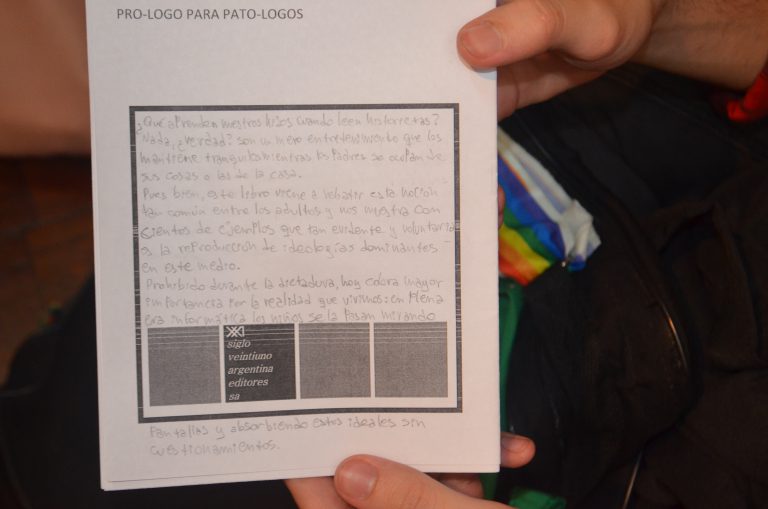 PRO-LOGO PARA PATO-LOGOS
¿Qué aprenden nuestros hijos cuando leen historietas?
Nada, ¿verdad? son un mero entretenimiento que los
mantiene tranquilos mientras los Padres se ocupan de
sus cosas o las de la casa.
Pues bien, este libro viene a voltear esta noción
tan común entre los adultos y nos muestra con
cientos de ejemplos que tan evidente y voluntaria
es la reproducción de ideologías dominantes
en este medio.
Prohibido durante la dictadura, hoy cobra mayor
importancia por la realidad que vivimos: en plena
era informática los niños se la pasan mirando
XXI
siglo
veintiuno
argentina
editores
sa
Pantallas y absorbiendo estos ideales sin
cuestionamientos.